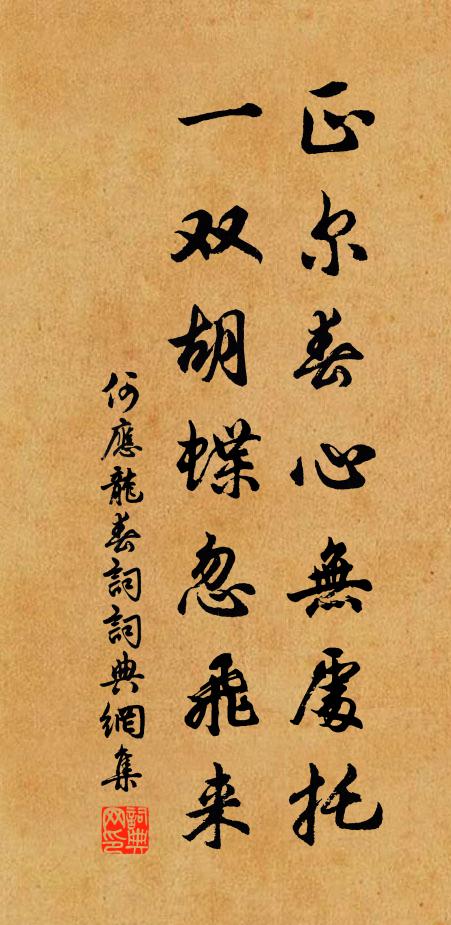 正尔春心無處托
一双胡蝶忽飛来
何應龍春詞詞典網集
詞典网印